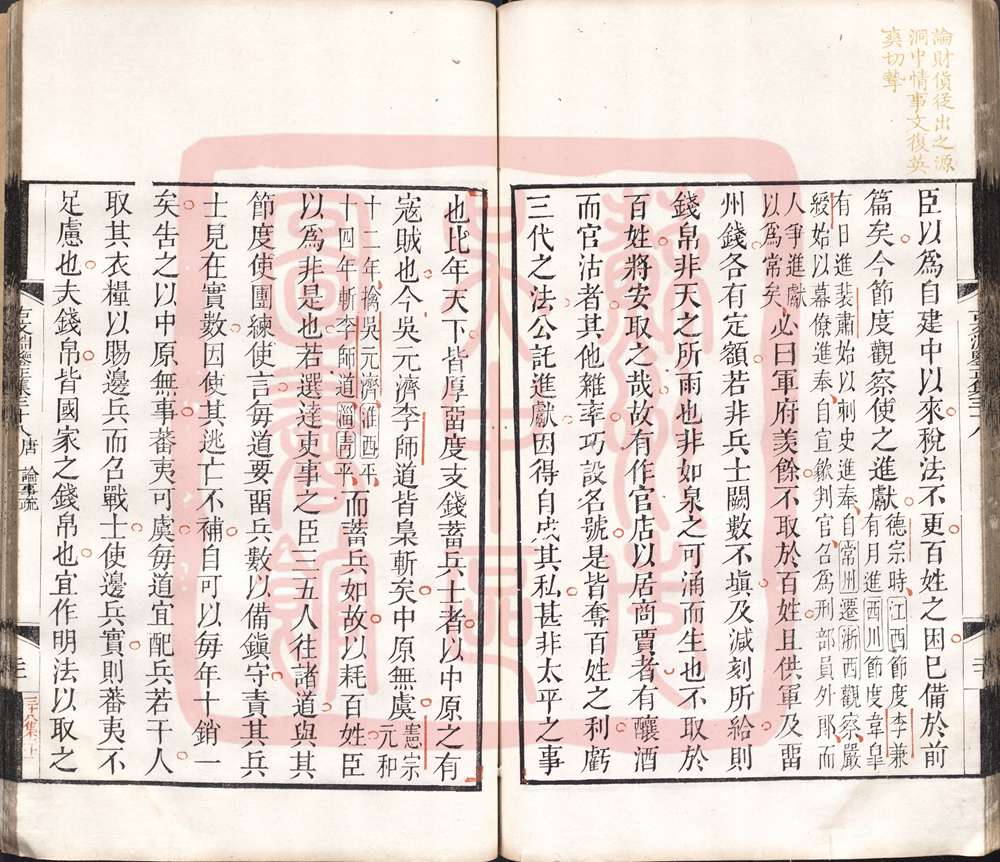 論財償從出之源
洞中情事文復英
爽切摯
臣以爲自建中以來稅法不更百姓之困已備於前
篇矣今節度觀察使之進獻
德宗時江西節度李兼
有月進西川節度韋皐
有日進裴肅始以刺史進奉自常州遷浙西觀察嚴
綬始以幕僚進奉自宣歙判官召爲刑部員外郎而
人爭進獻
以爲常矣
必曰軍府羨餘不取於百姓且供軍及畱
州錢各有定額若非兵士闕數不塡及減刻所給則
錢帛非天之所雨也非如泉之可涌而生也不取於
百姓將安取之哉故有作官店以居商賈者有釀酒
而官沽者其他雜率巧設名號是皆奪百姓之利虧
三代之法公託進獻因得自成其私甚非太平之事
也比年天下皆厚畱度支錢蓄兵士者以中原之有
寇賊也今吳元濟李師道皆梟斬矣中原無虞
憲宗
元和
十二年擒吳元濟淮西平
十四年斬李師道淄靑平
而蓄兵如故以耗百姓臣
以爲非是也若選達吏事之臣三五人往諸道與其
節度使團練使言每道要畱兵數以備鎭守責其兵
士見在實數因使其逃亡不補自可以每年十銷一
矣告之以中原無事蕃夷可虞每道宜配兵若干人
取其衣糧以賜邊兵而召戰士使邊兵實則蕃夷不
足慮也夫錢帛皆國家之錢帛也宜作明法以取之
唐 論事疏